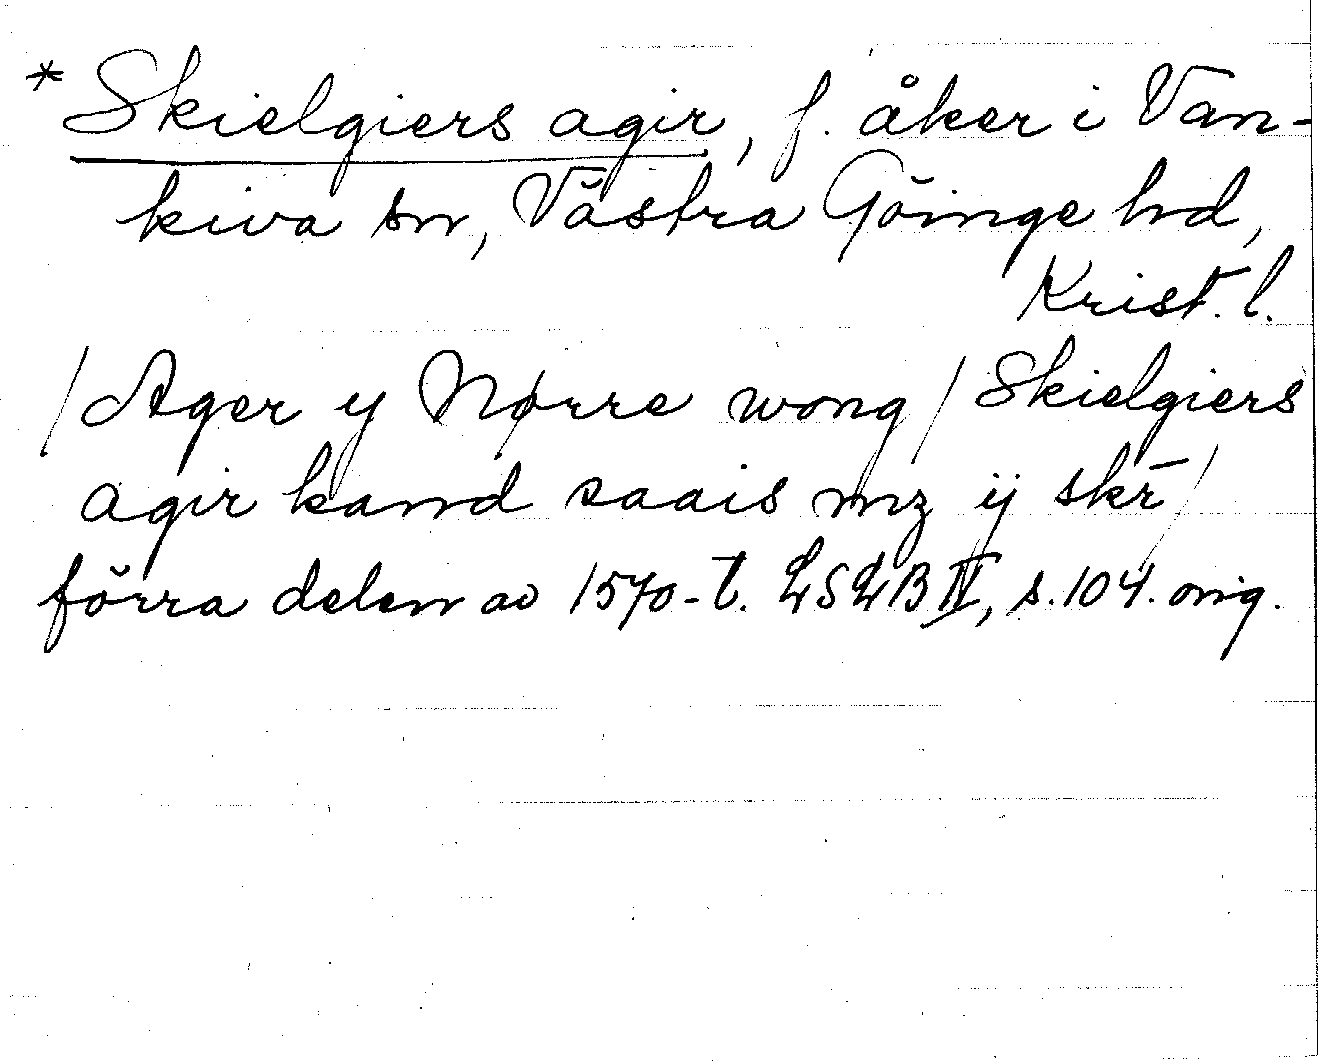 * Skielgiers agir, f. åker i Van-
kiva sn, Västra Göinge hd,
Krist. l.
/Ager y Nørre wong/ Skielgiers
agir kand saais mz ij skr̄/
förra delen av 1570-t. LSLB IV, s. 104. orig.